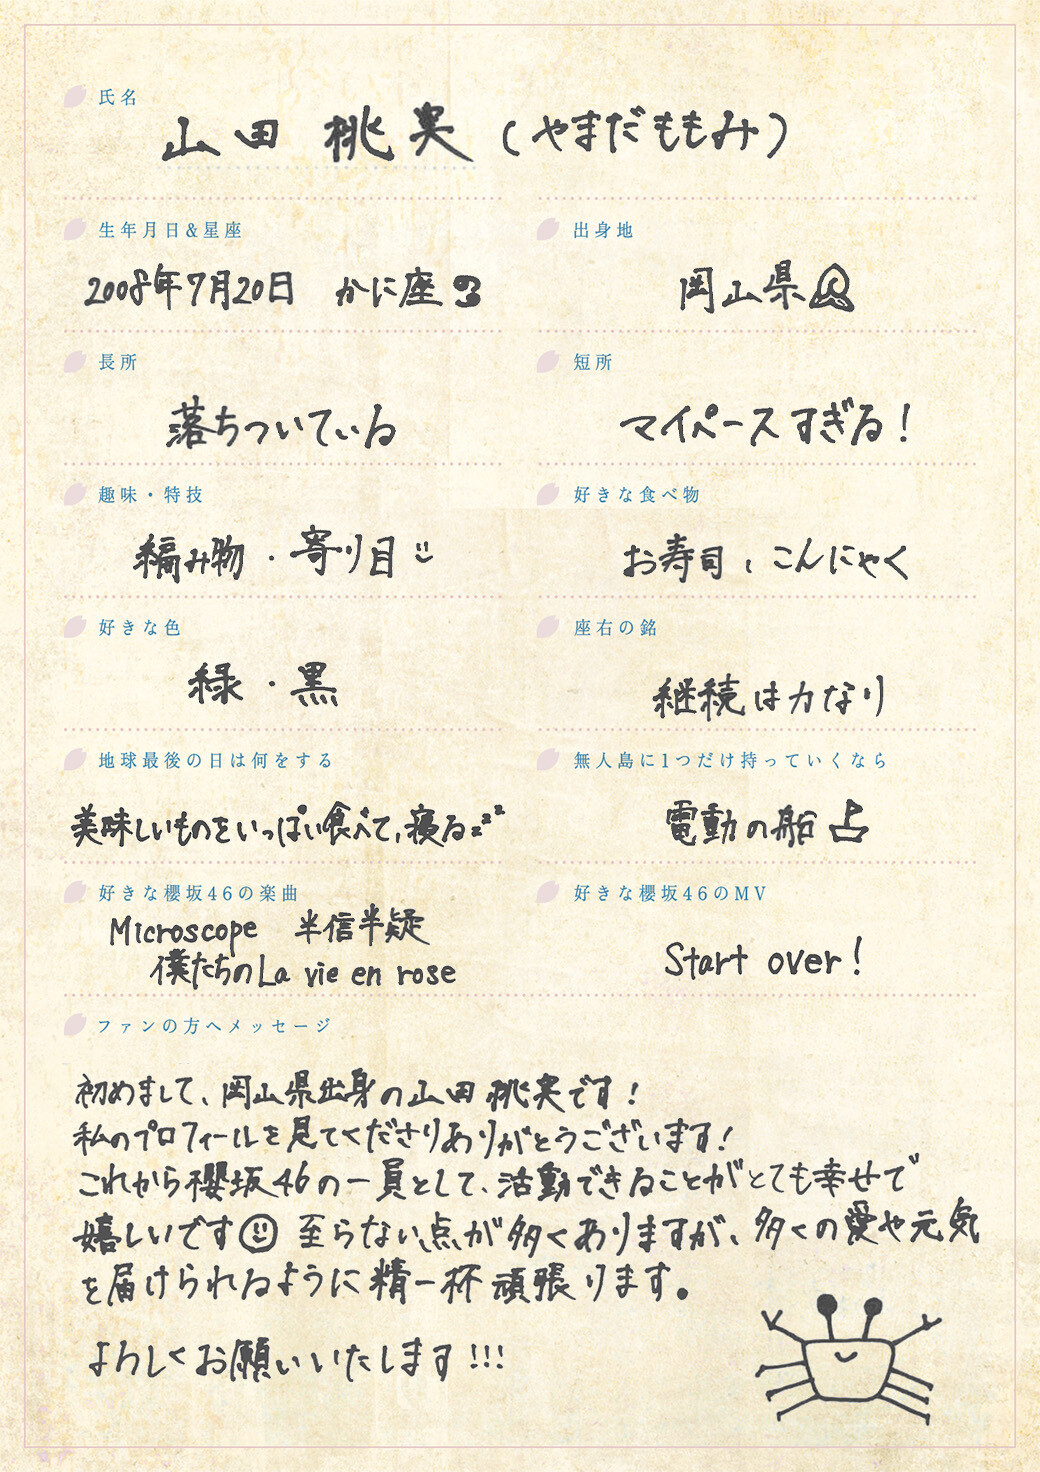 氏名
山田 桃実 (やまだももみ)
生年月日&星座
2008年7月20日 かに座
出身地
岡山県
長所
落ちついている
短所
マイペースすぎる!
趣味・特技
編み物・寄り目
好きな食べ物
お寿司、こんにゃく
好きな色
緑・黒
座右の銘
継続は力なり
地球最後の日は何をする
美味しいものをいっぱい食べて、寝る zzz
無人島に1つだけ持っていくなら
電動の船
好きな櫻坂46の楽曲
Microscope 半信半疑
僕たちのLa vie en rose
好きな櫻坂46のMV
Start over!
ファンの方へメッセージ
初めまして、岡山県出身の山田桃実です!
私のプロフィールを見てくださりありがとうございます!
これから櫻坂46の一員として、活動できることがとても幸せで
嬉しいです 至らない点が多くありますが、多くの愛や元気
を届けられるように精一杯頑張ります。
よろしくお願いいたします!!!